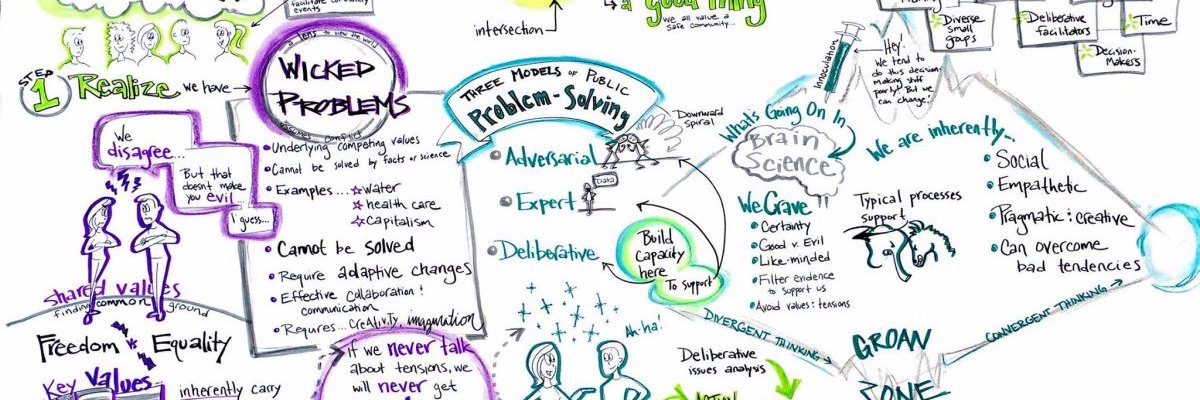 facilitate community
events
intersection
a Good Thing
we all value a
safe community...
Diverse
small
groups
Deliberative
facilitators
Time
Decision-
Makers
STEP
1 Realize we have
a lens to view the world
WICKED
PROBLEMS
assumes conflict
Underlying competing values
Cannot be solved by facts or science
Examples... water
health care
Capitalism
Cannot be solved
Require adaptive changes
Effective Collaboration &
communication
Requires... creativity, imagination
We
disagree...
But that
doesn't make
you evil...
I guess...
shared values
finding common ground
Freedom Equality
Key Values
inherently carry
if we never talk
about tensions, we
will never get
THREE MODELS OF PUBLIC
Problem-Solving
Adversarial
Downward
Spiral
Expert
Data
Deliberative
Build
Capacity
here
To support
Ah-ha!
Deliberative
issues analysis
ACTION
Innoculation
Hey!
We tend to
do this decision
making stuff
poorly! But we
can change!
What's Going On In
Brain
Science
We Crave
Certainty
Good v. Evil
Like-minded
Filter evidence
to support us
Avoid values & tensions
Typical processes
support
We are inherently...
Social
Empathetic
Pragmatic & creative
Can overcome
bad tendencies
DIVERGENT THINKING
GROAN
ZONE
CONVERGENT THINKING